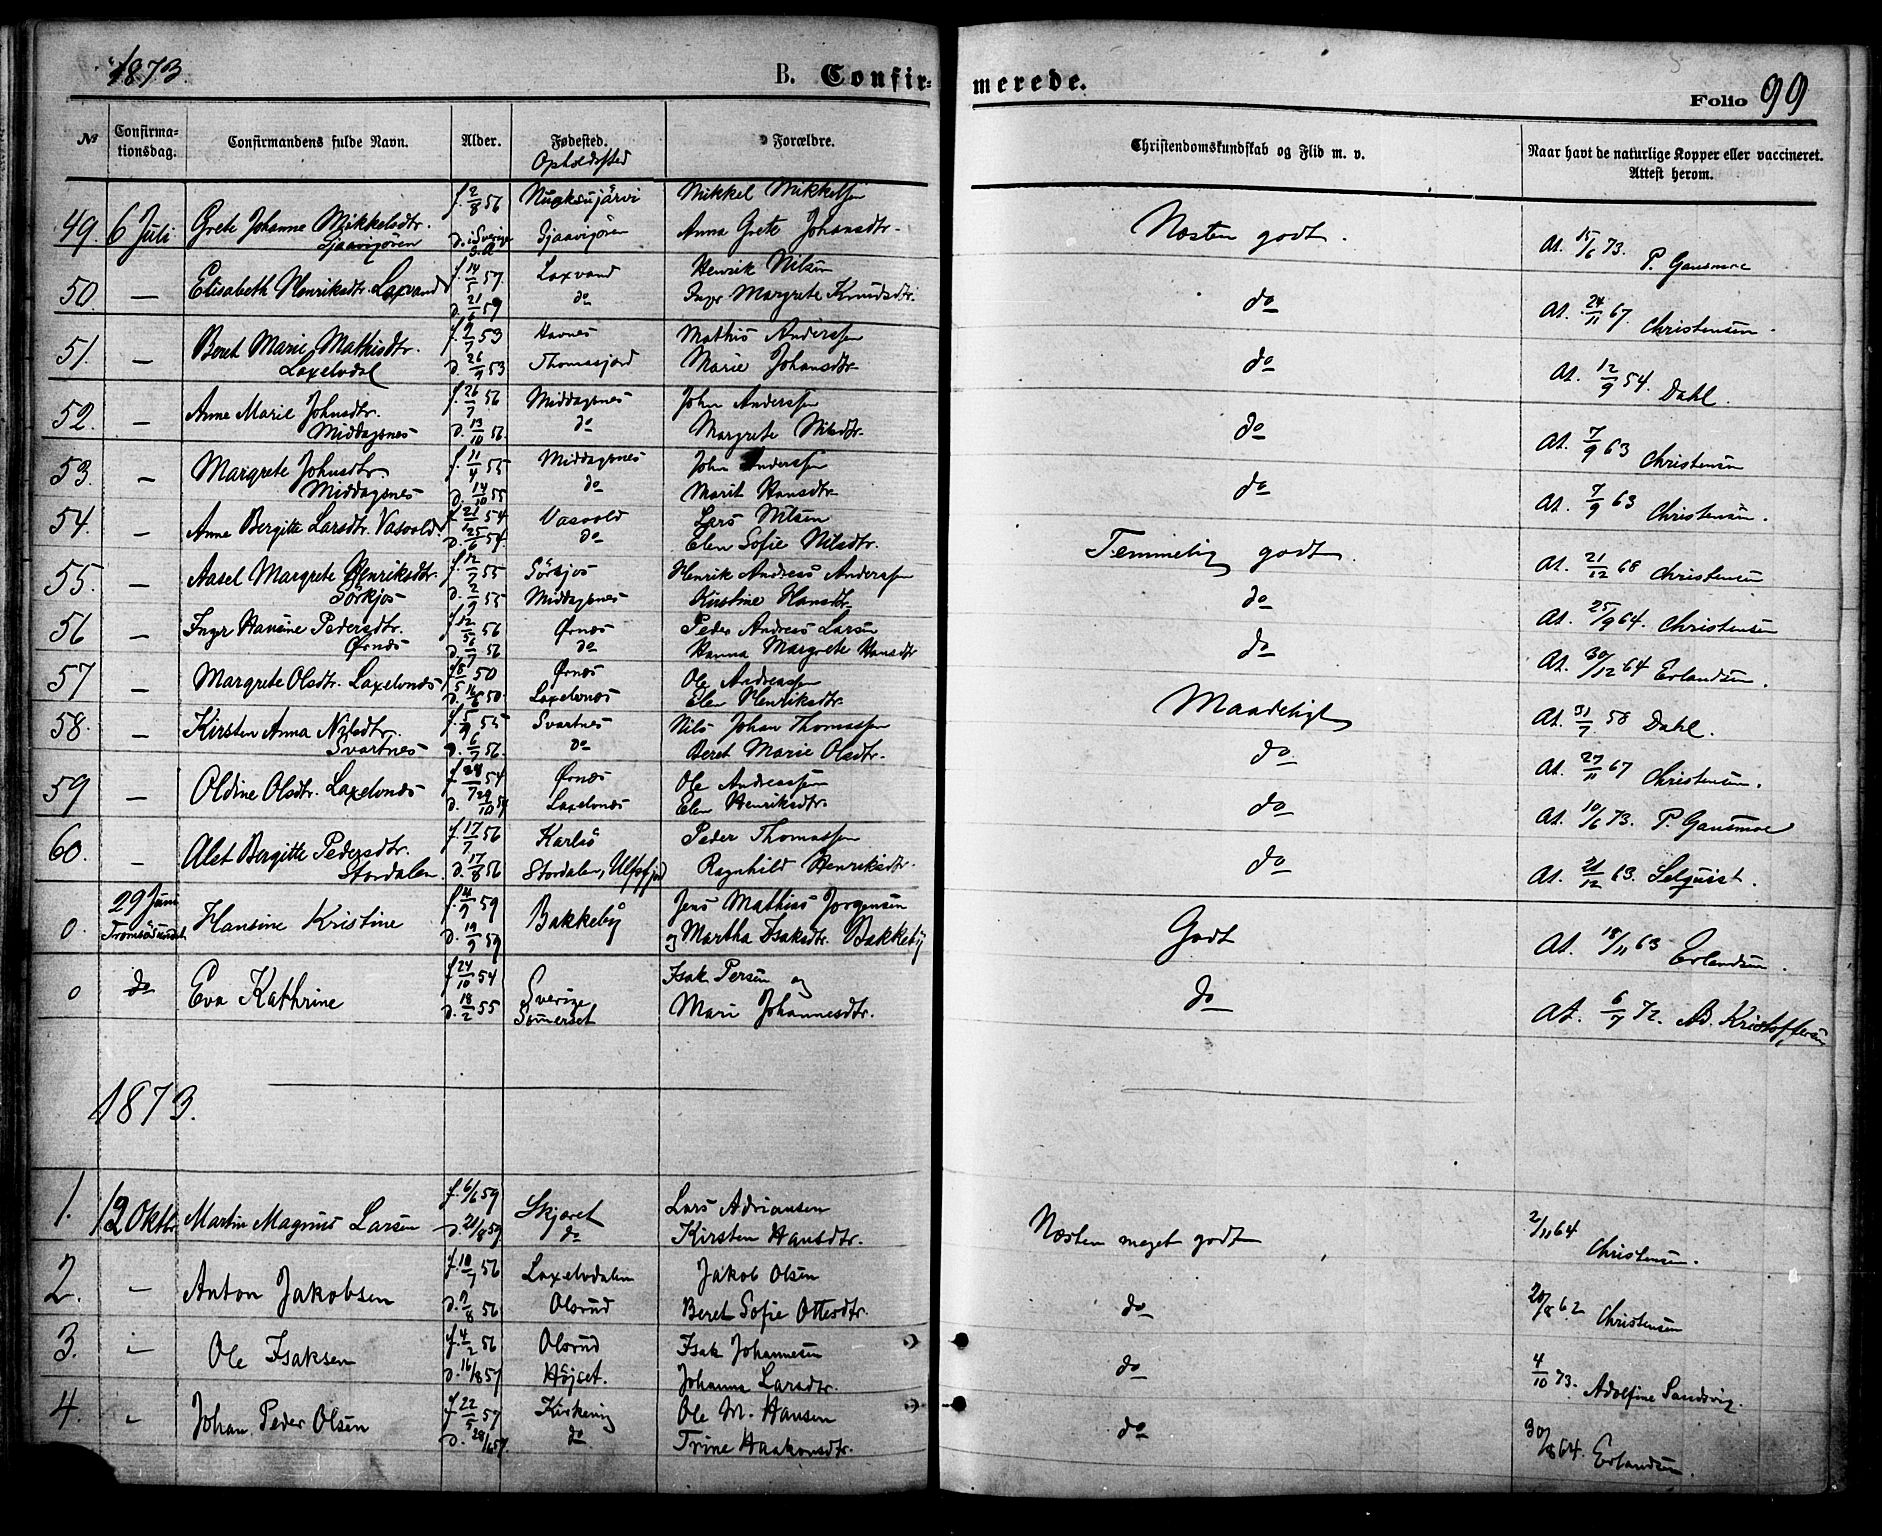 1873.
B. Confir-
merede.
Folio 99
No
Confirma-
tionsdag.
Confirmandens fulde Navn.
Alder.
Fødested.
Opholdssted
Forældre.
Christendomskundskab og Flid m. v.
Naar havt de naturlige Kopper eller vaccineret.
Attest herom.
f. 2/8 56 Mikkel Mikkelsen
49. 6 Juli Grete Johanne Mikkelsdtr. d. i Sverige Anna Grete Johansdtr. Næsten godt. At. 15/6 73. P. Gausmoe
50. — Elisabeth Henriksdtr. Laxvand 57. Laxvand Henrik Nilsen
59 do Inger Margrete Knudsdtr. do At. 24/11 67. Christensen.
51. — Beret Marie Mathisdtr. f. 9/7 53 Havnes Mathis Anderssen
Laxelvdal d. 26/9 53 Thomasjord Marie Johansdtr. do At. 12/9 54. Dahl.
52. — Anne Marie Johnsdtr. f. 26/7 56 Middagsnes John Anderssen
Middagsnes d. 13/10 56. do Margrete Nilsdtr. do At. 7/9 63 Christensen
53. — Margrete Johnsdtr. f. 11/4 55 Middagsnes John Anderssen
Middagsnes d. 14/10 55 do Marit Hansdtr. do At. 7/9 63 Christensen.
54. — Anne Bergitte Larsdtr. Vasvold 54. Vasvold Lars Nilsen
54. do Elen Sofie Nilsdtr. Temmelig godt. At. 21/12 68 Christensen
55. — Aasel Margrete Henriksdtr. f. 12/7 55 Sørkjos Henrik Andreas Anderssen
Sørkjos d. 2/9 55 Middagsnes Kristine Hansdtr. do At. 25/9 64. Christensen
56 — Inger Hansine Pedersdtr. f. 12/5 56 Ørnes Peder Andreas Larsen
Ørnes 56 do Hanna Margrete Hansdtr do At. 30/12 64 Erlandsen.
57 — Margrete Olsdtr. Laxelvnes 50 Ørnes Ole Andreassen
50. Laxelvnes Elen Henriksdtr. Maadeligt At. 31/7 58 Dahl.
58. — Kirsten Anna Nilsdtr. 55 Svartnes Nils Johan Thomassen
Svartnes d. 6/7 56. do Beret Marie Olsdtr. do At. 27/11 67 Christensen.
59 — Oldine Olsdtr. Laxelvnes 54 Ørnes Ole Andreassen
d. 29/10 54 Laxelvnes Elen Henriksdtr. do At. 10/6 73. P. Gausmoe
60. — Alet Bergitte Pedersdtr. f. 17/7 56 Karlsö Peder Thomassen
Stordalen d. 17/8 56 Stordalen, Ulfsfjord Ragnhild Henriksdtr. do At. 21/12 63. Selquist.
29 Juni f. 4/7 59 Jens Mathias Jørgensen
0. Tromsøsundet Hansine Kristine d. 19/9 59 Bakkeby og Martha Isaksdtr. Bakkeby Godt At. 18/11 63 Erlandsen.
f. 24/10 54 Isak Persen og
0 do Eva Kathrine d. 18/2 55 Sverige Mari Johannesdtr. do At. 6/7 72. Ad. Kristoffersen
Sømerset
1873.
1. 12 Oktbr Martin Magnus Larsen f. 6/6 59 Skjæret Lars Adriansen
d. 20/8 59 do Kirsten Hansdtr. Næsten meget godt 2/11 64 Christensen.
2. " Anton Jakobsen f. 10/7 56 Laxelvdalen Jakob Olsen
56 Olsrud Beret Sofie Ottesdtr. do 20/8 62 Christensen
3. " Ole Isaksen f. 4/2 56 Olsrud Isak Johannesen
d. 16/8 57 Højset. Johanna Larsdtr. do 4/10 73. Adolfine Sandvig.
4. " Johan Peder Olsen f. 22/5 57 Kirkevig Ole M. Hansen
d. 28/6 57. do Trine Haakonsdtr. do 30/8 64. Erlandsen.